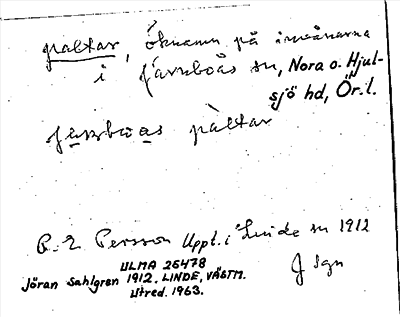 paltar, öknamn på invånarna
i Järnboås sn, Nora o. Hjul-
sjö hd, Ör.l.
järnboas pàltar
P. E. Persson Uppt. i Linde sn 1912
ULMA 26478
Jöran Sahlgren 1912. LINDE, VÄSTM.
Utred. 1963.
J Sgn